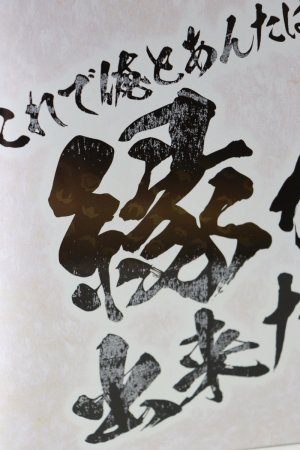 これで俺とあんたは
縁
出来た